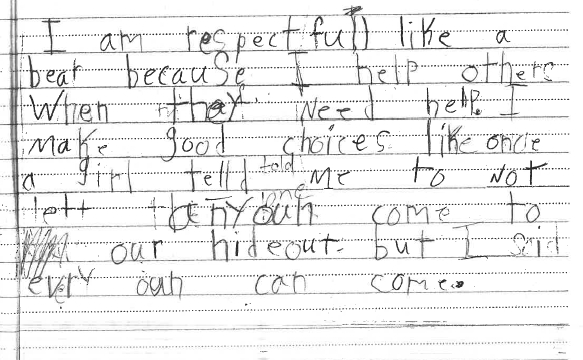 I am respectfull like a
bear because I help others
When they Need help I
Make good choices like once
a girl telld told Me to Not
lett anyouh one come to
our hideout. but I said
every ouh can come.